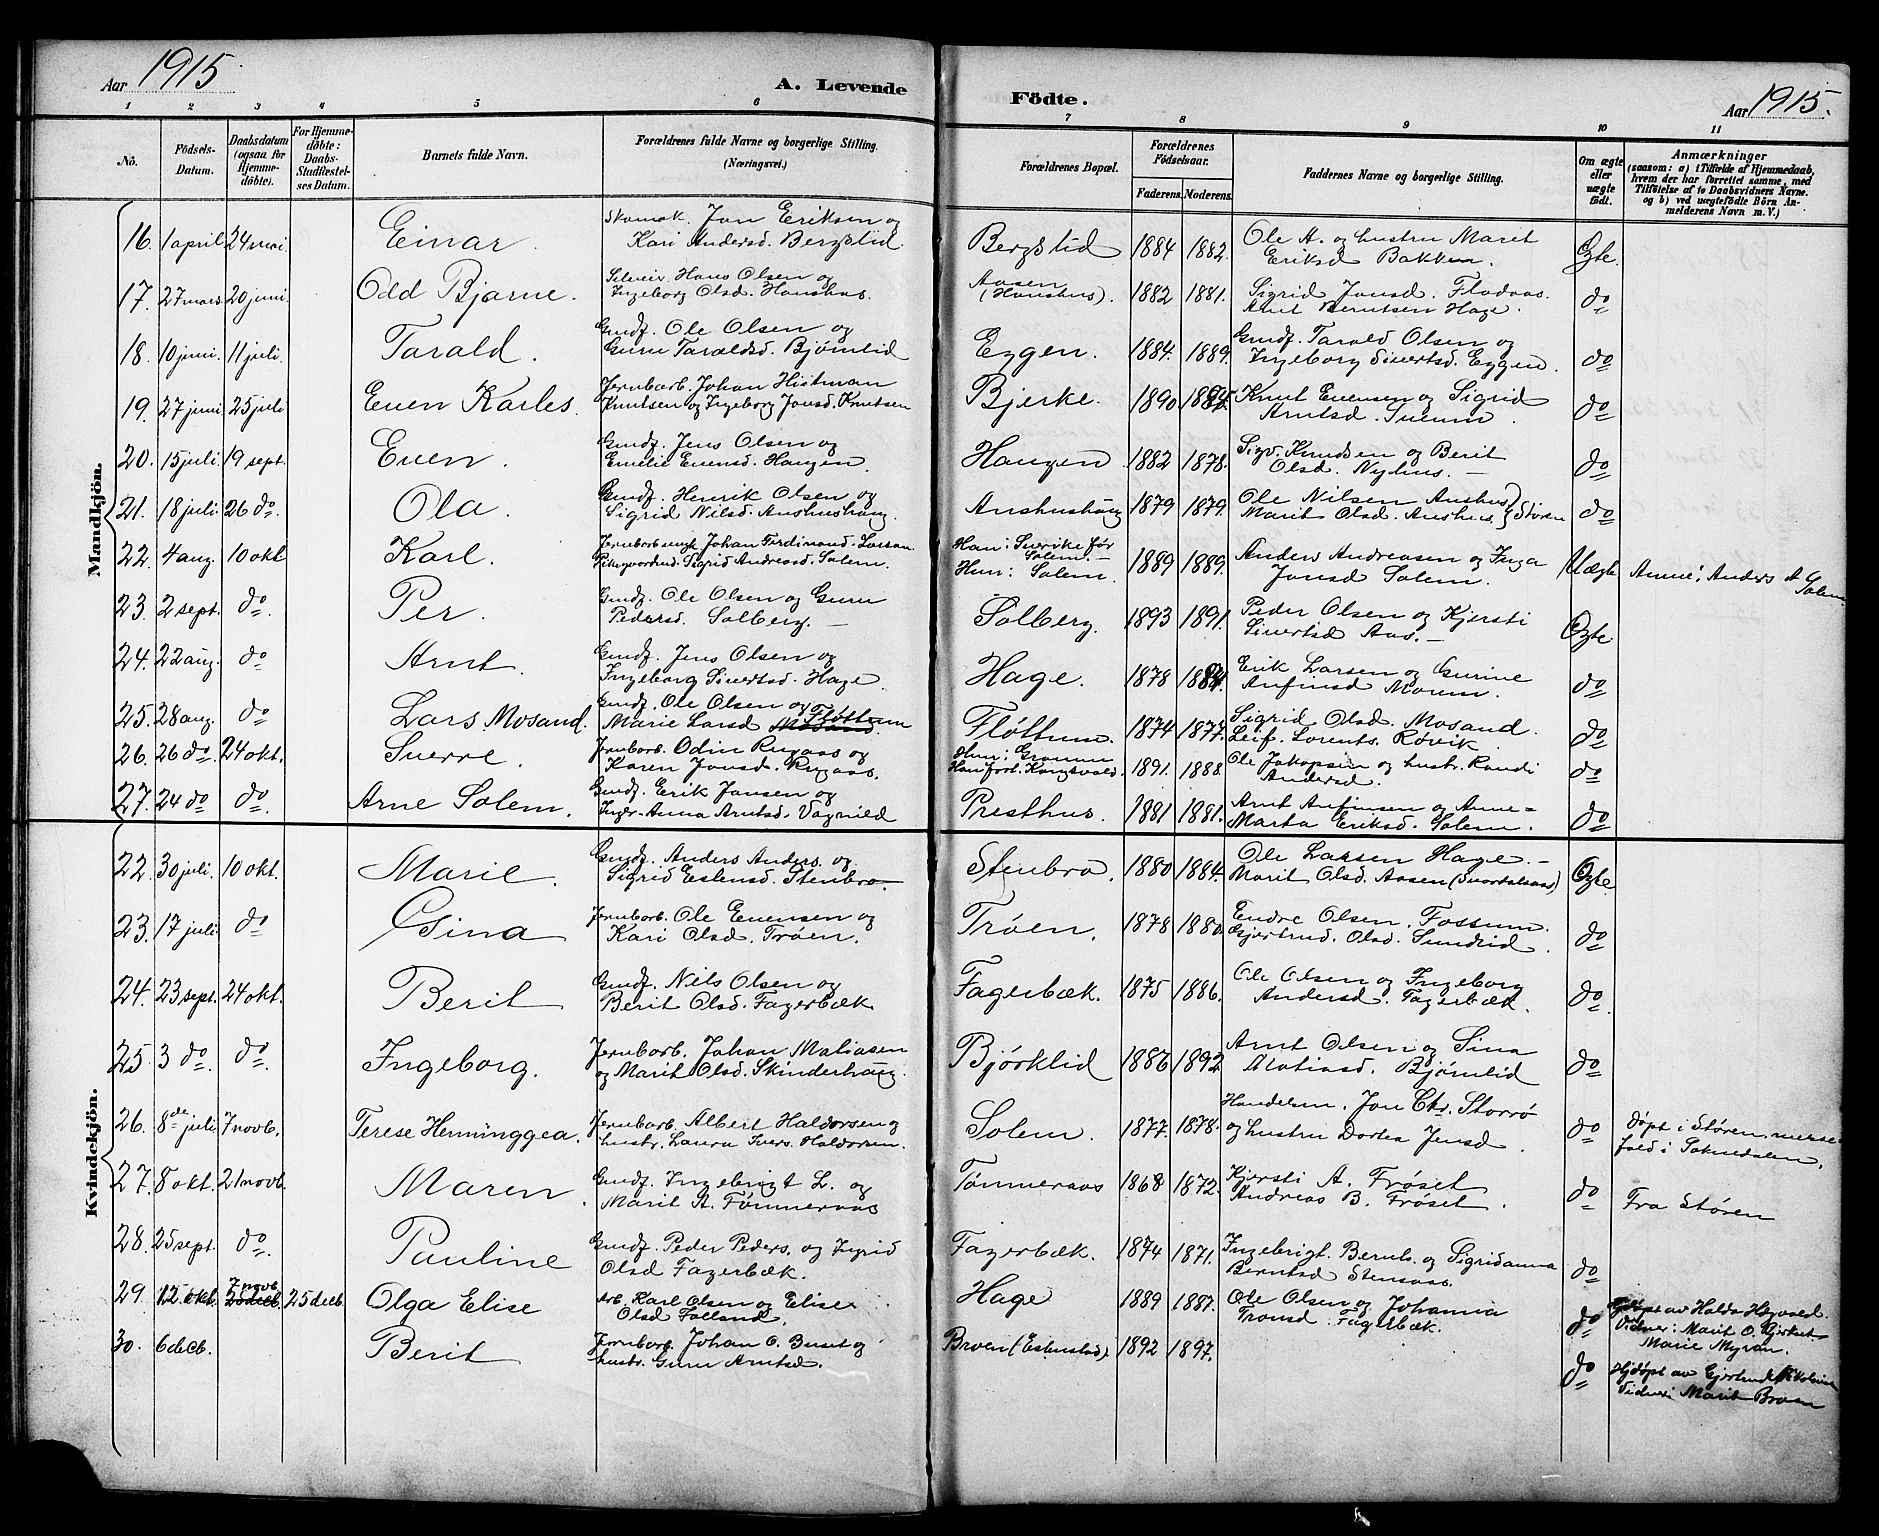 Aar 1915
A. Levende
Födte.
Aar 1915.
1 2 3 4 5 6 7 8 9 10 11
No.
Födsels-
Datum.
Daabsdatum
(ogsaa for
Hjemme-
döbte).
For Hjemme-
döbte:
Daabs-
Stadfæstel-
ses Datum.
Barnets fulde Navn.
Forældrenes fulde Navne og borgerlige Stilling.
(Næringsvei.)
Forældrenes Bopæl.
Forældrenes
Födselsaar.
Faderens. Moderens.
Faddernes Navne og borgerlige Stilling.
Om ægte
eller
uægte
født.
Anmærkninger
(saasom: a) i Tilfælde af Hjemmedaab,
hvem der har forrettet samme, med
Tilföielse af to Daabsvidners Navne,
og b) ved uægtefødte Börn An-
melderens Navn m. V.)
Mandkjön.
16. 1 april 24 mai. Einar. Skomak. Jon Eriksen og
Kari Andersd. Bergslid. Bergslid 1884 1882. Ole A. og hustru Maret
Eriksd Bakken. Ægte.
17. 27 mars 20 juni. Odd Bjarne. Hans Olsen og
Ingeborg Olsd. Hanshus. Aasen
(Hanshus). 1882 1881. Sigrid Jonsd. Flodaas.
Arnt Berntsen Hage. do
18. 10 juni. 11 juli. Tarald. Gmdf. Ole Olsen og
Guru Taraldsd. Bjørnlid Eggen. 1884. 1889. Gmdf. Tarald Olsen og
Ingeborg Sivertsd. Eggen. do
19. 27 juni 25 juli Even Karles. Jernbarb. Johan Hiitman
Knutsen og Ingeborg Jonsd. Knutsen Bjerke. 1890 Knut Evensen og Sigrid
Arntsd. Svenn. do
20. 15 juli. 19 sept. Even. Gmdf. Jens Olsen og
Emelie Evensd. Haugen. Haugen 1882 1878. Sigv. Knudsen og Berit
Olsd. Nyhus. do
21. 18 juli. 26 do. Ola. Gmdf. Henrik Olsen og
Sigrid Nilsd. Aushushaug. Aushushaug 1879 1879. Ole Nilsen Aushus
Marit Olsd. Aushus. Støren do
22. 4 aug. 10 okt Karl. Jernbarb. ungk. Johan Ferdinand Larson
Sigrid Andreasd. Solem. Han: Sverike før
Solem.
Hun: Solem. 1889 1889. Anders Andreasen og Inga
Jonsd Solem. Uægte Anme: Anders A Solem
23. 2 sept. do Per. Gmdf. Ole Olsen og Guru
Pedersd. Solberg. Solberg. 1893 1891. Peder Olsen og Kjersti
Sivertsd Aas. Ægte
24. 22 aug. do Arnt. Gmdf. Jens Olsen og
Ingeborg Sivertsd. Hage. Hage. 1878 Erik Larsen og Gurine
Anfinsd Moum. do
25. 28 aug. do Lars Mosand. Gmdf. Ole Olsen og
Marie Larsd Mosand Fløttum Fløttum. 1874 1877. Sigrid Olsd. Mosand.
Leif Lorents. Røvik. do
26. 26 do. 24 okt. Sverre. Jernbarb. Odin Rugaas og
Karen Jonsd. Rugaas. Hun: Gramm
Han forl. Kongsvold. 1891. 1888. Ole Jakopsen og hustr. Randi
Andersd. do
27. 24 do do. Arne Solem. Gmdf. Erik Jonsen og
Inger-Anna Arntsd. Vagnild Presthus. 1881 1881. Arnt Anfinsen og Anne-
Marta Eriksd. Solem. do
Kvindekjön.
22. 30 juli. 10 okt. Marie. Gmdf. Anders Anders. og
Sigrid Estensd. Stenbro. Stenbro. 1880 1884. Ole Larsen Hage.
Marit Olsd. Aasen Ægte
23. 17 juli. do Gina Jernbarb. Ole Evensen og
Kari Olsd. Trøen. Trøen. 1878 1880. Endre Olsen. Fossum.
Gjertrud. Olsd. Sundlid. do
24. 23 sept. 24 okt. Berit Gmdf. Nils Olsen og
Berit Olsd. Fagerbæk Fagerbæk. 1875 1886. Ole Olsen og Ingeborg
Andersd. Fagerbæk. do
25. 3 do. do. Ingeborg. Jernbarb. Johan Matiasen
og Marit Olsd. Skinderhaug. Bjørklid 1886 1892 Arnt Olsen og Sina
Matiasd. Bjørnlid do
26. 8de juli 7 novb. Terese Henninggea. Jernbarb. Albert Haldorsen og
hustr. Laura Ivers. Haldorsen. Solem. 1877. 1878. Handelsm. Jon Chr. Storrø
og hustru Dortea Jensd. do døpt i Støren,
fødd i Soknedalen.
27. 8 okt. 21 novb. Maren. Gmdf. Ingebrigt L. og
Marit A. Tømmeraas Tømmeraas 1868 1872. Kjersti A. Frøset
Andreas B. Frøset. do Fra Støren
28. 25 sept. do. Pauline Gmdf. Peder Peders. og Ingrid
Olsd Fagerbæk. Fagerbæk. 1874 1871. Ingebrigt. Bernts. og Sigridanna
Berntsd Stensaas. do
29. 12 okt. 7 novb. 25 decb. 25 decb. Olga Elise Arb. Karl Olsen og Elise
Olsd Folland. Hage 1889 1887. Ole Olsen og Johanna
Tronsd. Fagerbæk. do Hjdøpt av Halda Hegvold
Vidner: Marit O. Bjerkset
Marie Myran.
30. 6 decb. Berit Jernbarb. Johan O. Buset og
hustr. Guru Arntsd. Broen (Estenstad) 1892 1897. do Hjdøpt av Gjertrud
Vidner: Marit Broen